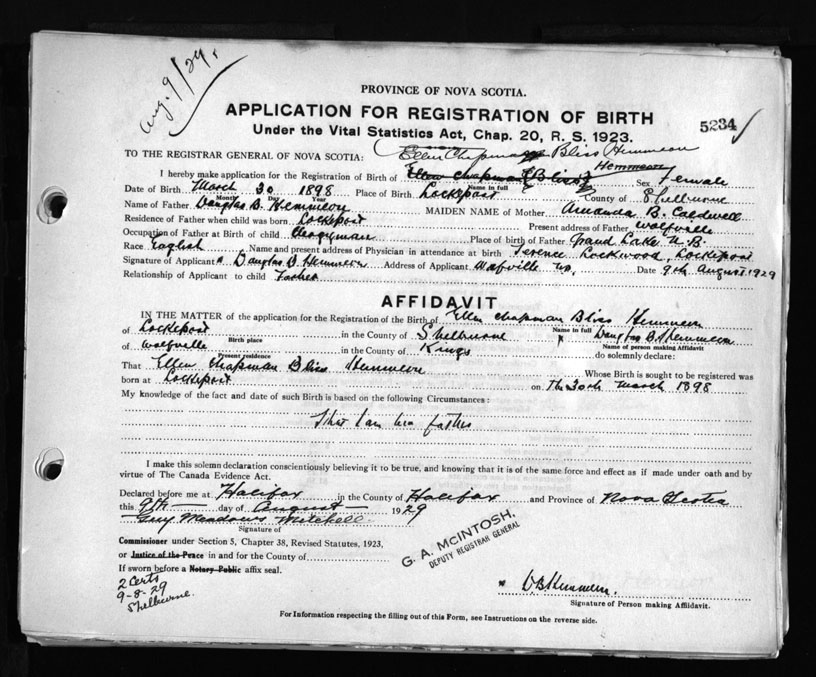 Aug. 9/29.
PROVINCE OF NOVA SCOTIA.
APPLICATION FOR REGISTRATION OF BIRTH
5234
Under the Vital Statistics Act, Chap. 20, R. S. 1923.
TO THE REGISTRAR GENERAL OF NOVA SCOTIA: Ellen Chapman Bliss Hemmeon
I hereby make application for the Registration of Birth of Ellen Chapman Bliss Hemmeon Sex Female
Name in full
Date of Birth March 30 1898 Place of Birth Lockeport County of Shelburne
Month Day Year
Name of Father Douglas B. Hemmeon MAIDEN NAME of Mother Amanda B. Caldwell
Residence of Father when child was born Lockeport Present address of Father Wolfville
Occupation of Father at Birth of child Clergyman Place of birth of Father Grand Lake N.B.
Race English Name and present address of Physician in attendance at birth Lockwood, Lockeport
Signature of Applicant Douglas B. Hemmeon Address of Applicant Wolfville N.S. Date 9th August 1929
Relationship of Applicant to child Father
AFFIDAVIT
IN THE MATTER of the application for the Registration of the Birth of Ellen Chapman Bliss Hemmeon
Name in full
of Lockeport in the County of Shelburne I Douglas B. Hemmeon
Birth place Name of person making Affidavit
of Wolfville in the County of Kings do solemnly declare:
Present residence
That Ellen Chapman Bliss Hemmeon Whose Birth is sought to be registered was
born at Lockeport on The 30th March 1898
My knowledge of the fact and date of such Birth is based on the following Circumstances:
That I am her father
I make this solemn declaration conscientiously believing it to be true, and knowing that it is of the same force and effect as if made under oath and by
virtue of The Canada Evidence Act.
Declared before me at Halifax in the County of Halifax and Province of Nova Scotia
this 9th day of August 1929
Guy Meadows Mitchell
Signature of
Commissioner under Section 5, Chapter 38, Revised Statutes, 1923,
or Justice of the Peace in and for the County of
If sworn before a Notary Public affix seal.
G. A. McINTOSH,
DEPUTY REGISTRAR GENERAL
2 Certs
9-8-29
Shelburne.
D B Hemmeon.
Signature of Person making Affidavit.
For Information respecting the filling out of this Form, see Instructions on the reverse side.